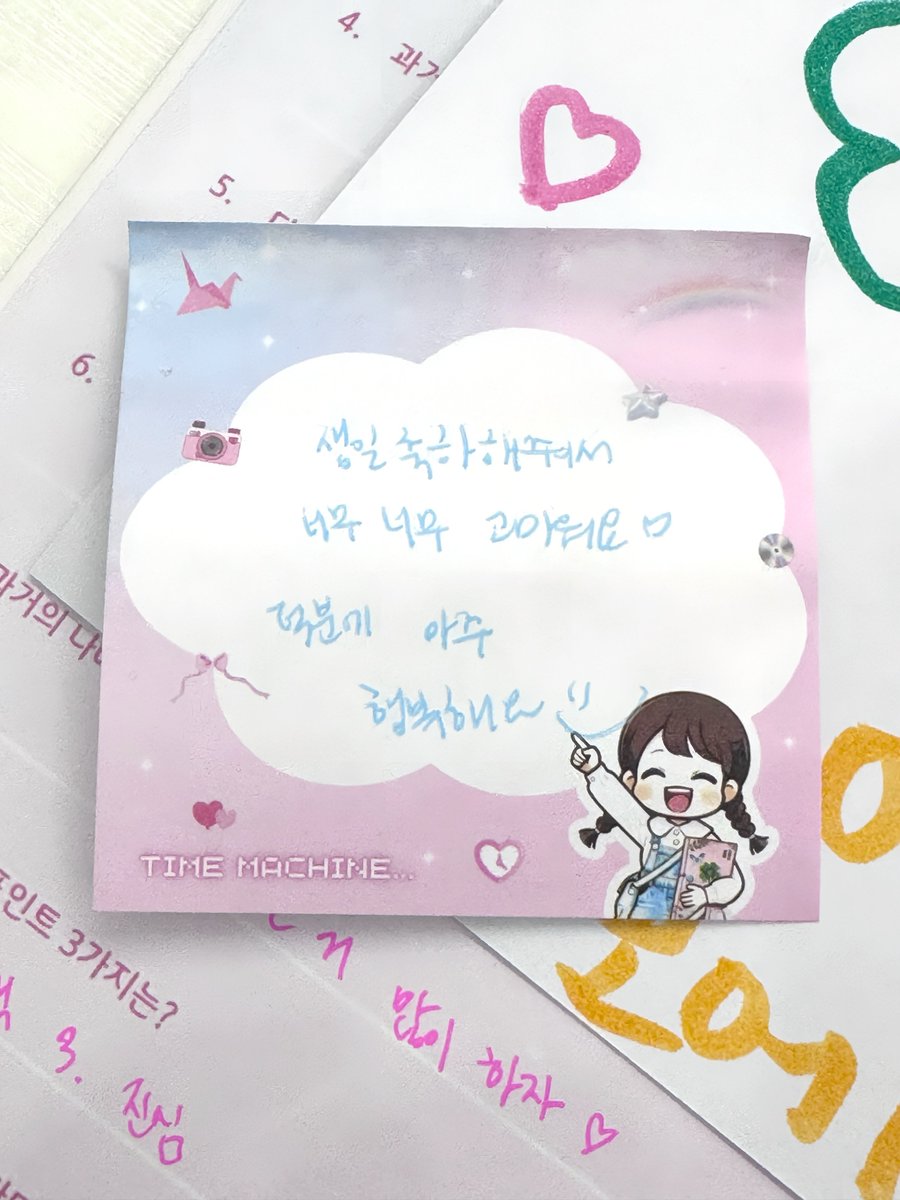 4. 과거
5.
6.
생일 축하해주어서
너무 너무 고마워요ㅁ
덕분에 아주
행복해요
TIME MACHINE...
과거의 나
포인트 3가지는?
3. 진심
많이 하자 ♡